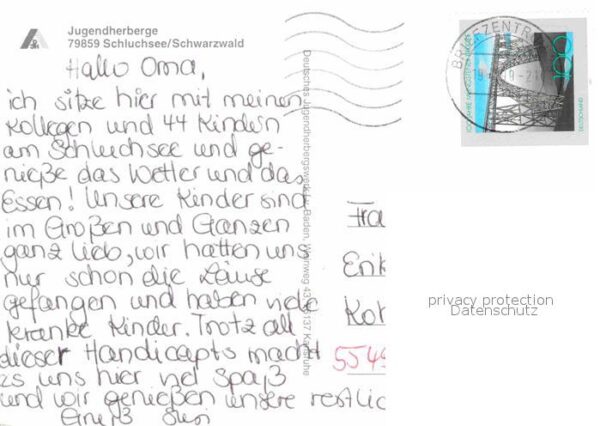 Jugendherberge
79859 Schluchsee/Schwarzwald
Hallo Oma,
ich sitze hier mit meinen
Kollegen und 44 Kindern
am Schluchsee und ge-
nieße das Wetter und das
Essen! Unsere Kinder sind
im Großen und Ganzen
ganz lieb, wir hatten uns
nur schon die Läuse
gefangen und haben viele
kranke Kinder. Trotz all
dieser Handicapts macht
es uns hier viel Spaß
und wir genießen unsere restlic
Gruß
Deutsches Jugendherbergswerk Lv. Baden, Weinweg 43, 76137 Karlsruhe
BRIEFZENTR
100
Fra
Erik
Kot
5549
privacy protection
Datenschutz